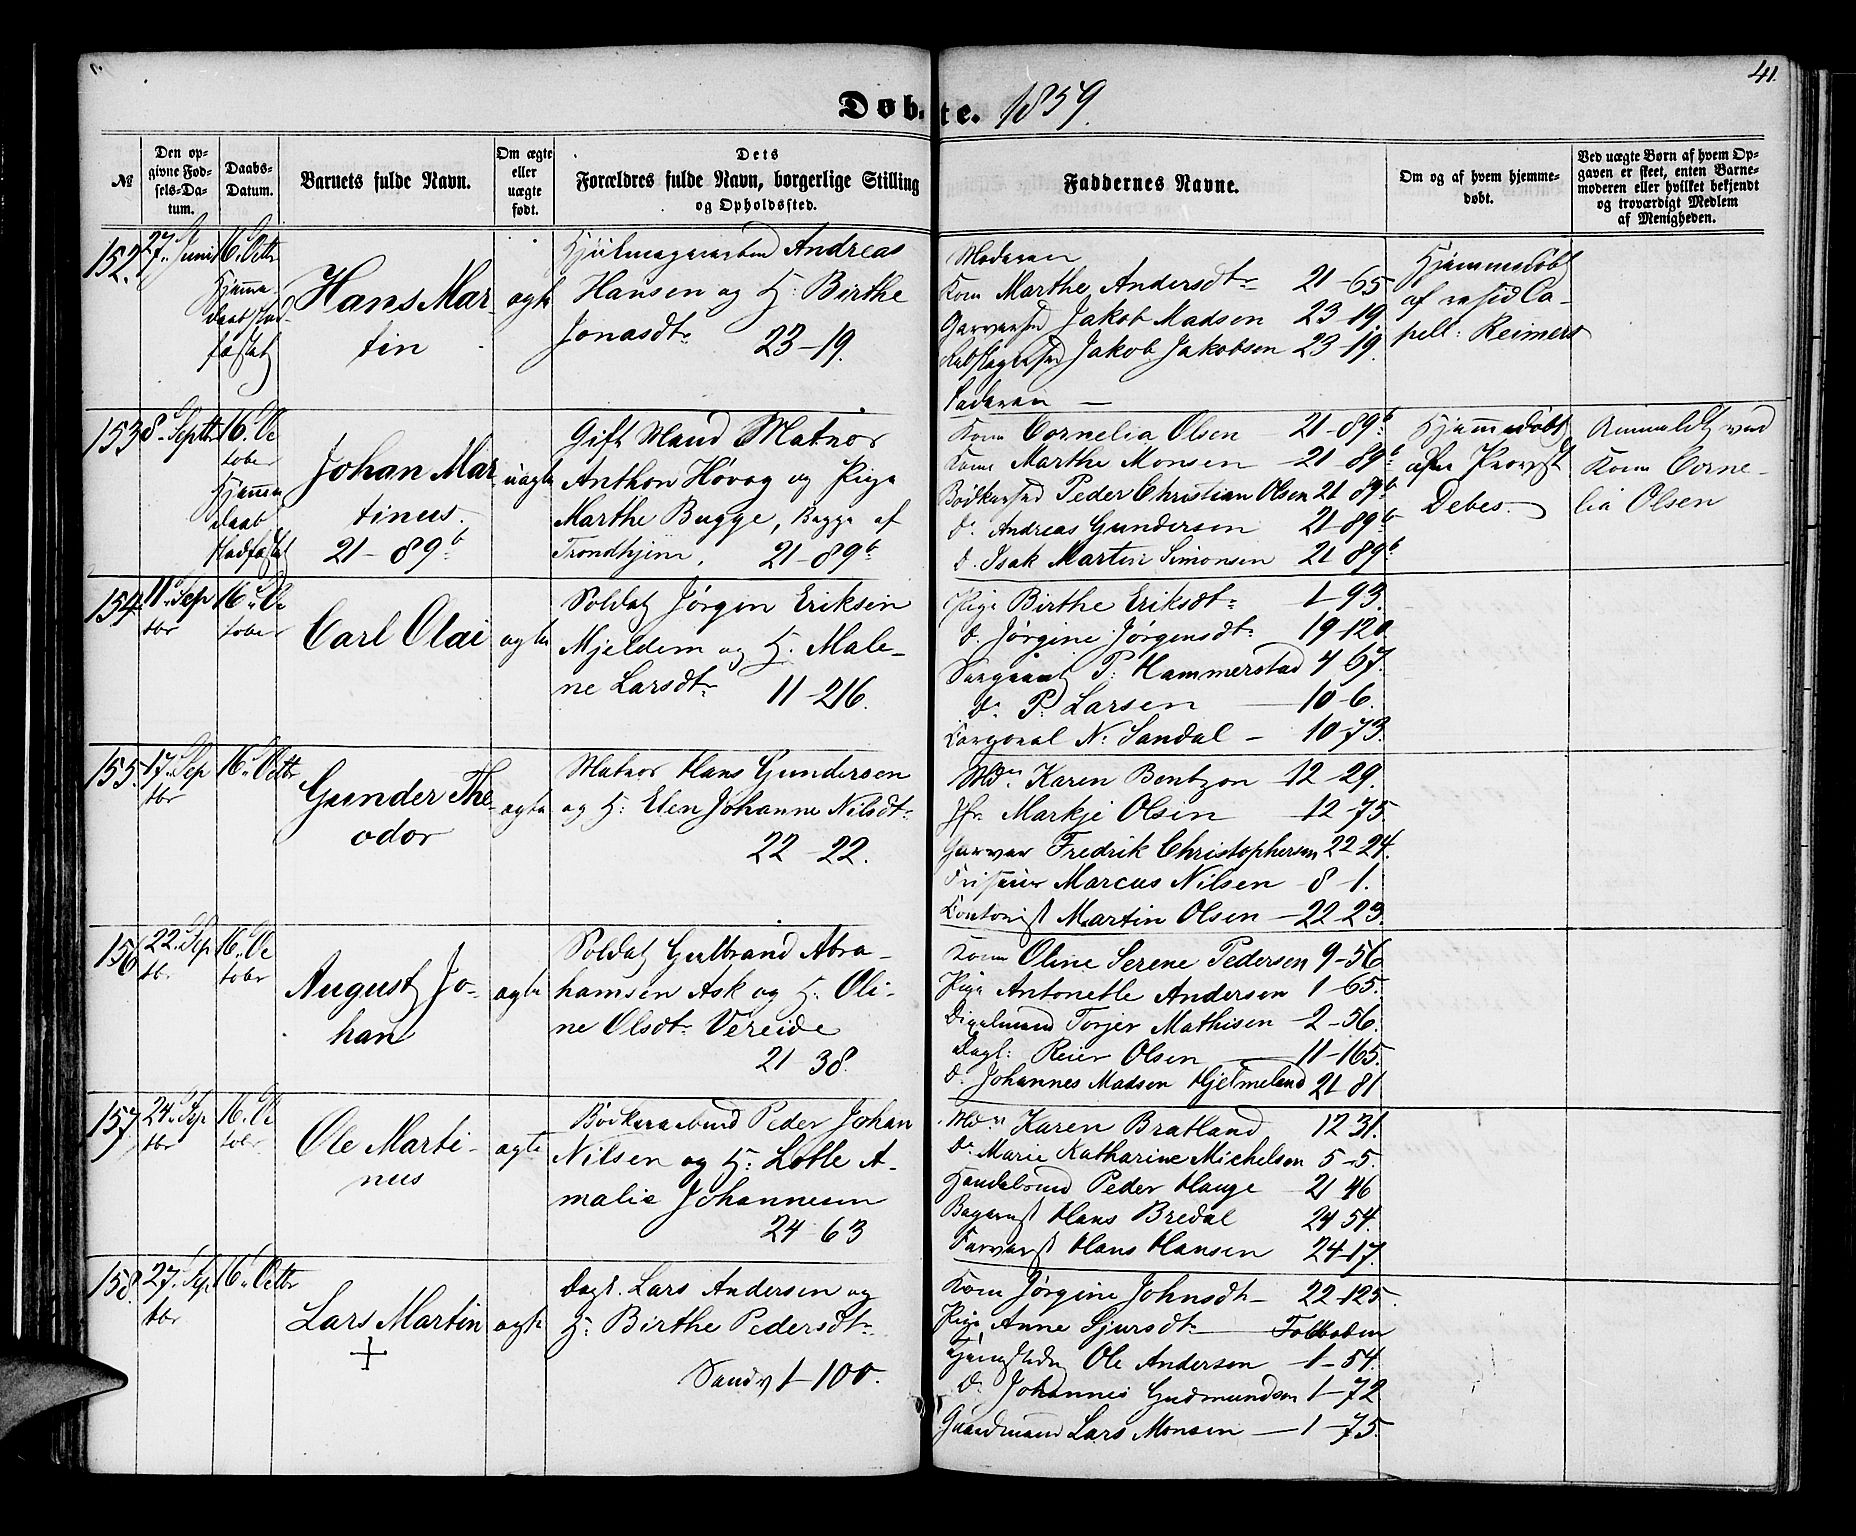 41.
Døbte. 1859.
№
Den opgivne Fødsels-Datum.
Daabs-Datum.
Barnets fulde Navn.
Om ægte eller uægte født.
Dets Forældres fulde Navn, borgerlige Stilling og Opholdssted.
Faddernes Navne.
Om og af hvem hjemmedøbt.
Ved uægte Børn af hvem Opgaven er skeet, enten Barnemoderen eller hvilket bekjendt og troværdigt Medlem af Menigheden.
152. 27. Juni 16. Octbr
Hjemmedaab stadfæstet
Hans Martin
ægte
Andreas
Hansen og H: Birthe
Jonasdtr 23-19.
Moderen
Kone Marthe Andersdtr 21-65
Garversvd Jakob Madsen 23-19.
Jakob Jakobsen 23-19.
Faderen —
Hjemmedøbt
af resid Ca-
pell: Reimers
153 8. Septbr 16. Oc
tober
Hjemme
daab
stadfæstet
Johan Mar
tinus.
21-89b
uægte
Gift Mand Matros
Anthon Høvog og Pige
Marthe Bugge, Bugge af
Trondhjem. 21-89b
Kone Cornelia Olsen 21-89b
Kone Marthe Monsen 21-89b
Bødkersvd Peder Christian Olsen 21 89b
do Andreas Gundersen 21-89b
do Isak Martin Simonsen 21 89b
Hjemmedøbt
af Provst
Debes.
Anmeldt ved
Kone Corne-
lia Olsen
154 11. Sep
tbr
16. Oc
tober
Carl Olai
ægte
Soldat Jørgen Eriksen
Mjeldem og H. Male-
ne Larsdtr 11-216.
Pige Birthe Eriksdtr 1-93.
do Jørgine Jørgensdtr 19-120
Sergeant P: Hammerstad 4 67.
do P: Larsen — 10-6.
Corporal N: Sandal — 10-73.
155. 17. Sep
tbr
16. Octbr
Gunder The-
odor
ægte
Matros Hans Gundersen
og H: Elen Johanne Nilsdtr
22-22.
Md. Karen Bentzon 12-29.
Jfr. Markje Olsen 12-75
Garver Fredrik Christophersen 22 24.
Marcus Nilsen 8-1.
Contorist Martin Olsen — 22-23.
156 22. Sep
tb.
16. Oc
tobr
August Jo-
han
ægte
Soldat Gulbrand Abra-
hamsen Ask og H. Oli-
ne Olsdtr Vereide
21-38.
Kone Oline Serene Pedersen 9-56
Pige Antonette Andersen 1-65.
Torjer Mathisen 2-56.
Dagl: Reier Olsen — 11-165.
do Johannes Madsen Hjelmeland 21 81
157 24. Sep
tbr
16. Oc
tobr
Ole Marti-
nus
ægte
Peder Johan
Nilsen og H: Lotte A-
malia Johannesen
24-63
Md. Karen Bratland 12 31.
do Marie Katharine Michelsen 5-5.
Peder Hauge 21 46
Bagersvd Hans Bredal 24 54.
Farversv Hans Hansen 24-17.
158. 27. Sep
tbr
16. Octbr
Lars Martin
+
ægte
Dagl. Lars Andersen og
H: Birthe Pedersdtr
Sandv 1-100.
Kone Jørgine Johnsdtr 22-125.
Pige Anne Sjursdtr — Toldboden
Ole Andersen 1-54.
do Johannes Gudmundsen 1-72
Gaardmand Lars Monsen — 1-75.